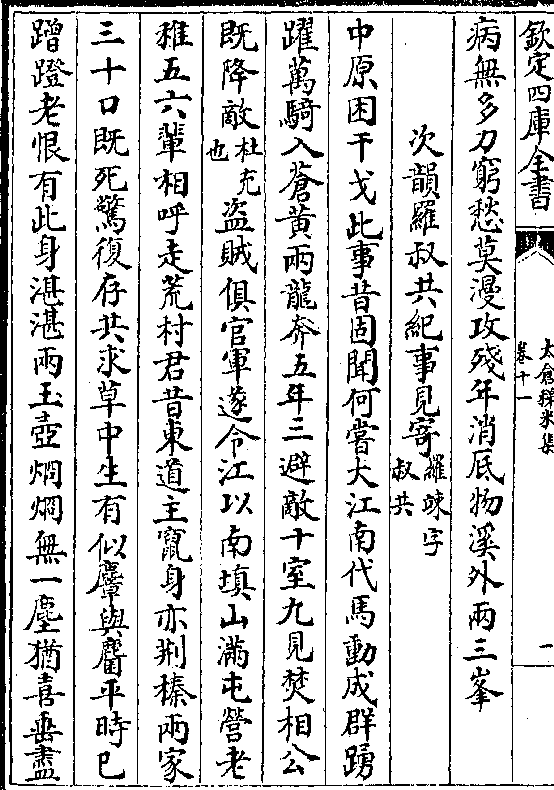 欽定四庫全書
太倉稊米集
卷十一
一
病無多刀窮愁莫漫攻殘年消底物溪外兩三峯
次韻羅叔共紀事見寄羅竦字叔共
中原困干戈此事昔固聞何嘗大江南代馬動成群踴
躍萬騎入蒼黃兩龍奔五年三避敵十室九見焚相公
既降敵杜充也盜賊俱官軍遂令江以南填山滿屯營老
稚五六輩相呼走荒村君昔東道主竄身亦荆榛兩家
三十口既死驚復存共求草中生有似麞與麕平時已
蹭蹬老恨有此身湛湛兩玉壺烱烱無一塵猶喜垂盡